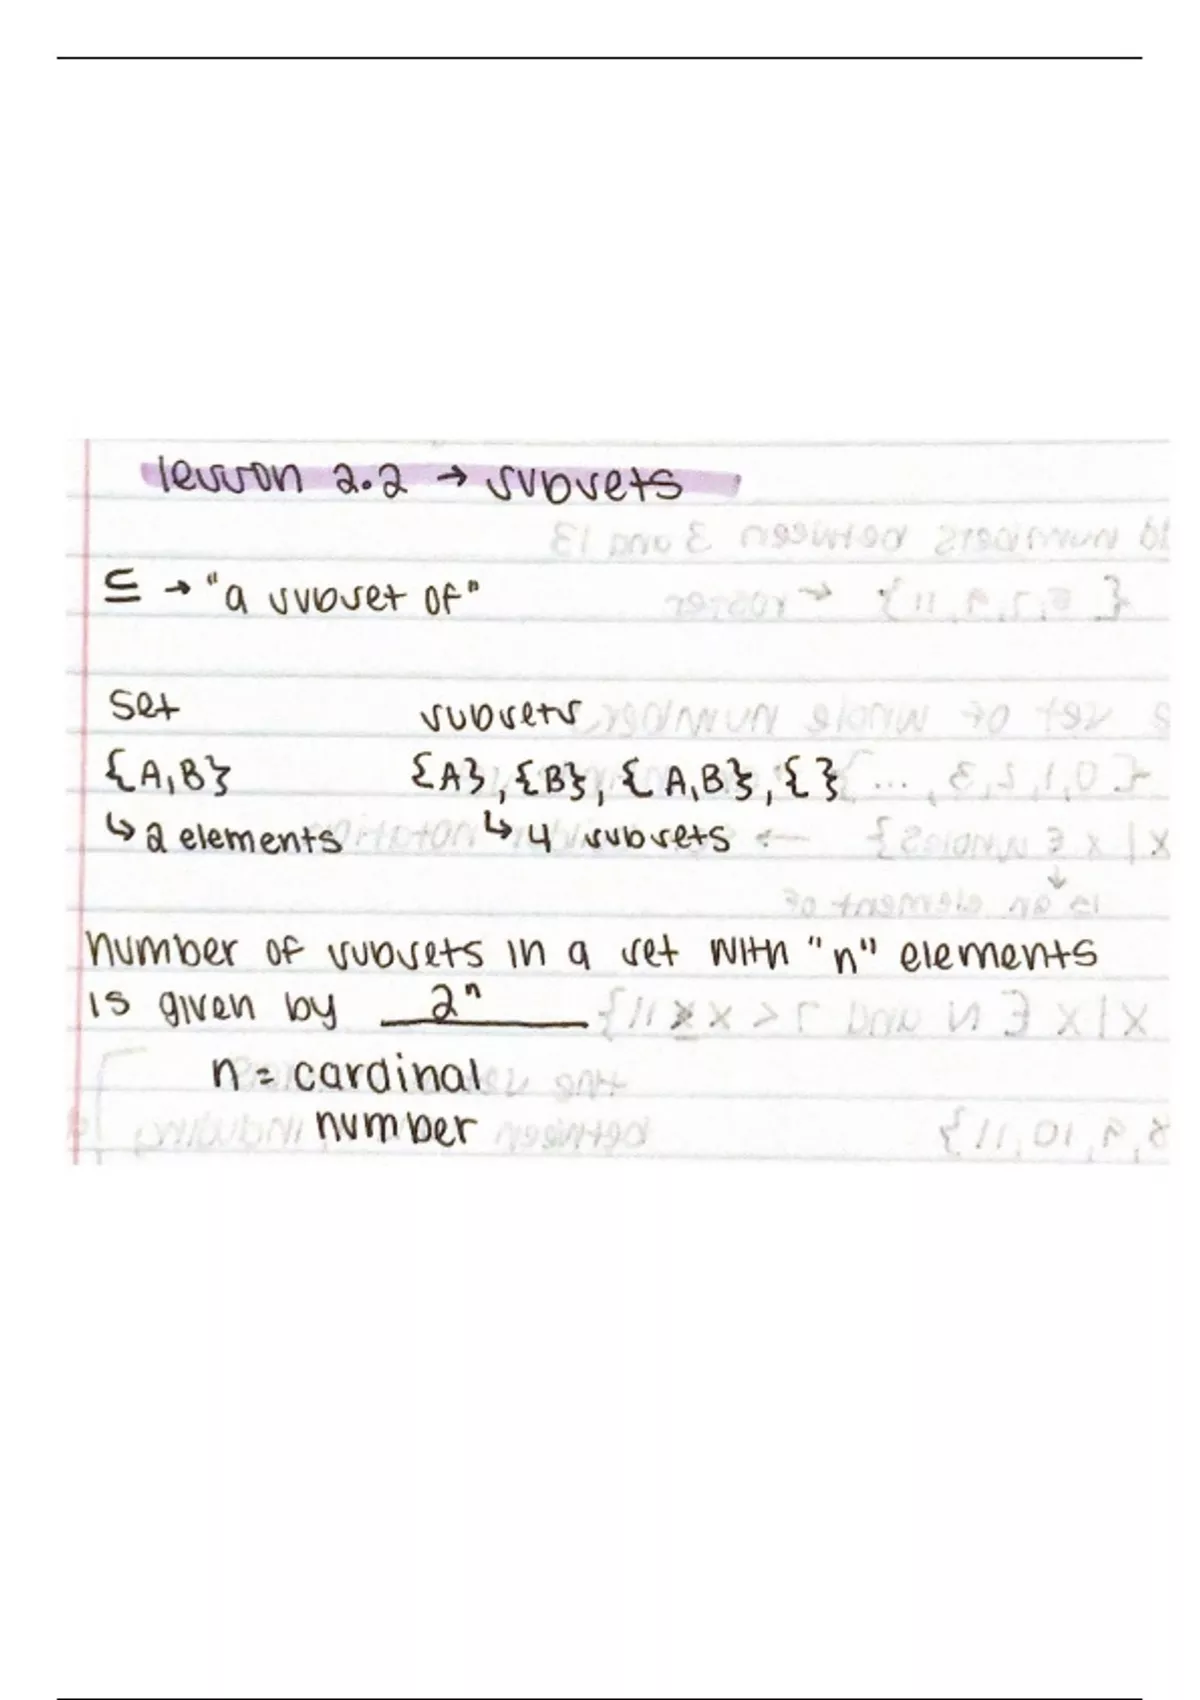 lesson 2.2 → subsets
⊆ → "a subset of"
set subsets
{A,B} {A}, {B}, {A,B}, { }
↳ 2 elements ↳ 4 subsets
number of subsets in a set with "n" elements
is given by 2ⁿ
n = cardinal
number